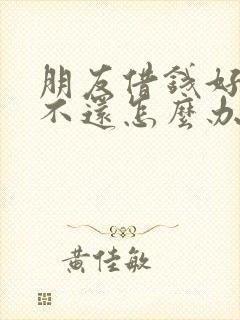 朋友借錢好
不還怎麼办
黃佳敏